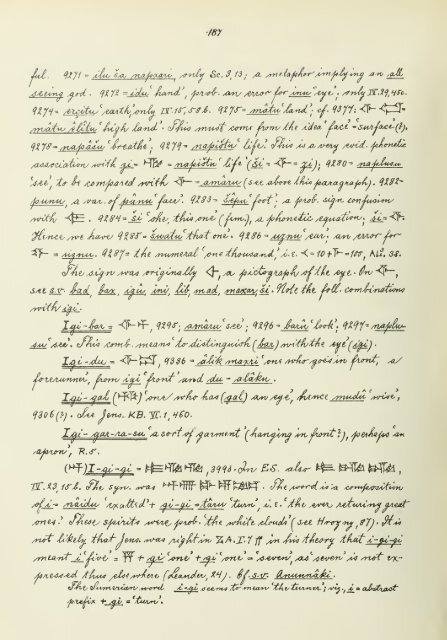 187
ful. 9271 = ilu ša napxari, only Sc. 3, 13; a metaphor implying an all
seeing god. 9272 = idu 'hand', prob. an error for inu 'eye'; only IV. 29, 45c.
9274 = erçitu 'earth', only IV. 15, 58 b. 9275 = mâtu 'land'; cf. 9377:
mâtu elîtu 'high land'. This must come from the idea 'face' = surface (?).
9278 = napâšu 'breathe'; 9279 = napištu 'life'. This is a very evid. phonetic
association with zi = = napištu 'life' (ši = = zi); 9280 = naplusu
'see', to be compared with = amâru (see above this paragraph). 9282 =
punu, a var. of pânu 'face'. 9283 = šêpu 'foot'; a prob. sign confusion
with . 9284 = ši 'she, this one' (fem.), a phonetic equation: ši =
Hence we have 9285 = šuatu 'that one'. 9286 = uznu 'ear'; an error for
= uznu. 9287 = the numeral 'one thousand', i.e. = 10 + = 100,
The sign was originally , a pictograph of the eye. On ,
see s.v. bad, bax, igû, ini, lib, mad, maxar, ši. Note the foll. combinations
with igi:
Igi-bar = , 9295; amâru 'see'; 9296 = barû 'look'; 9297 = naplu-
su 'see'. This comb. means 'to distinguish (bar) with the eye' (igi).
Igi-du = , 9336 = âlik maxri 'one who goes in front, a
forerunner', from igi 'front' and du = alâku.
Igi-gal ( ) 'one who has (gal) an eye', hence mudû 'wise',
9306 (?). See Jens. KB. VI. 1, 460.
Igi-gar-ra-su 'a sort of garment' (hanging in front?), perhaps 'an
apron', R.5.
( ) I-gi-gi = , 3993. In E.S. also ,
IV. 23, 15 b. The syn. was . The word is a composition
of i = nâidu 'exalted' + gi-gi = târu 'turn', i.e. 'the ever returning great
ones'. These spirits were prob. 'the white clouds' (see Hrozny, 87). It is
not likely that Jens. was right in ZA. I. 7 ff in his theory that i-gi-gi
meant i 'five' = + gi 'one' + gi 'one' = 'seven', as 'seven' is not ex-
pressed thus elsewhere (Leander, 24). Cf. s.v. Anunnaki.
The Sumerian word i-gi seems to mean 'the turner'; viz., i = abstract
prefix + gi = 'turn'.